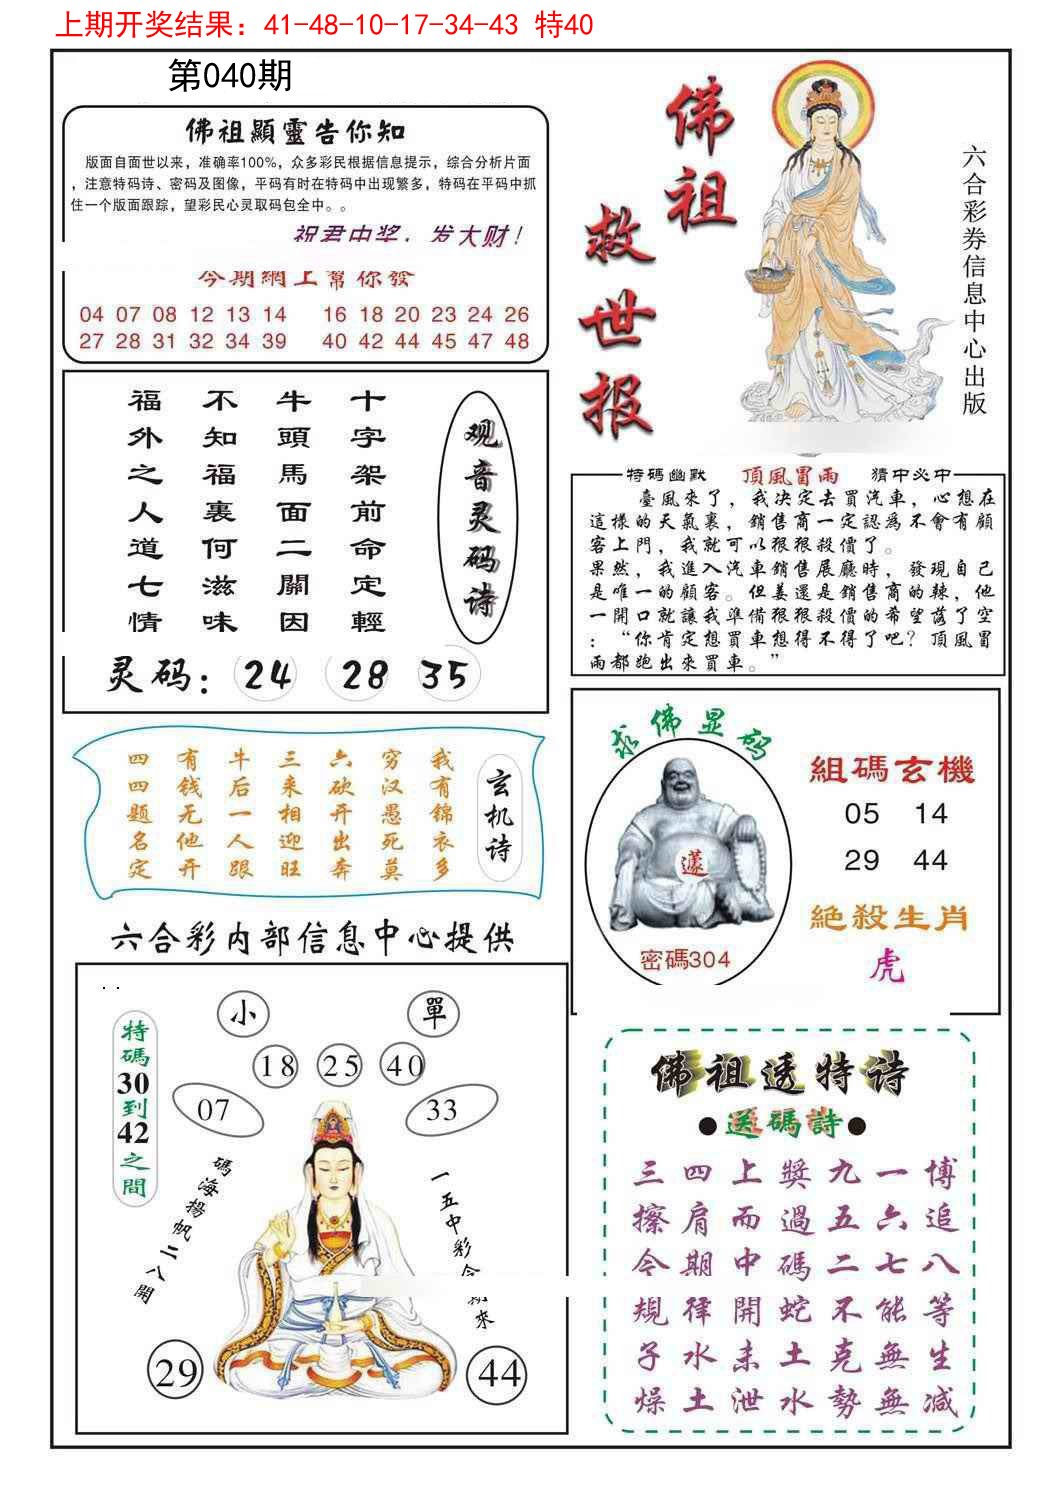 上期开奖结果：41-48-10-17-34-43 特40
第040期
佛祖顯靈告你知
版面自面世以来，准确率100%，众多彩民根据信息提示，综合分析片面
，注意特码诗、密码及图像，平码有时在特码中出现繁多，特码在平码中抓
住一个版面跟踪，望彩民心灵取码包全中。。
祝君中奖，发大财！
今期網上幫你發
04 07 08 12 13 14 16 18 20 23 24 26
27 28 31 32 34 39 40 42 44 45 47 48
佛祖
救世报
六合彩券信息中心出版
观音灵码诗
十字架前命定輕
牛頭馬面二關因
不知福裏何滋味
福外之人道七情
灵码：24 28 35
特碼幽默 頂風冒雨 猜中必中
臺風來了，我决定去買汽車，心想在
這樣的天氣裏，銷售商一定認爲不會有顧
客上門，我就可以狠狠殺價了。
果然，我進入汽車銷售展廳時，發現自己
是唯一的顧客。但姜還是銷售商的辣，他
一開口就讓我準備狠狠殺價的希望落了空
：“你肯定想買車想得不得了吧？頂風冒
雨都跑出來買車。”
玄机诗
我有锦衣多
穷汉愚死莫
六砍开出奔
三来相迎旺
牛后一人跟
有钱无他开
四四题名定
求佛显码
密碼304
組碼玄機
05 14
29 44
絕殺生肖
虎
六合彩内部信息中心提供
特碼30到42之間
小 單
18 25 40
07 33
碼海揚帆二八開
一五中彩今期來
29 44
佛祖透特诗
●送碼詩●
三四上獎九一博
擦肩而過五六追
令期中碼二七八
規律開蛇不能等
子水未土克無生
燥土泄水勢無减